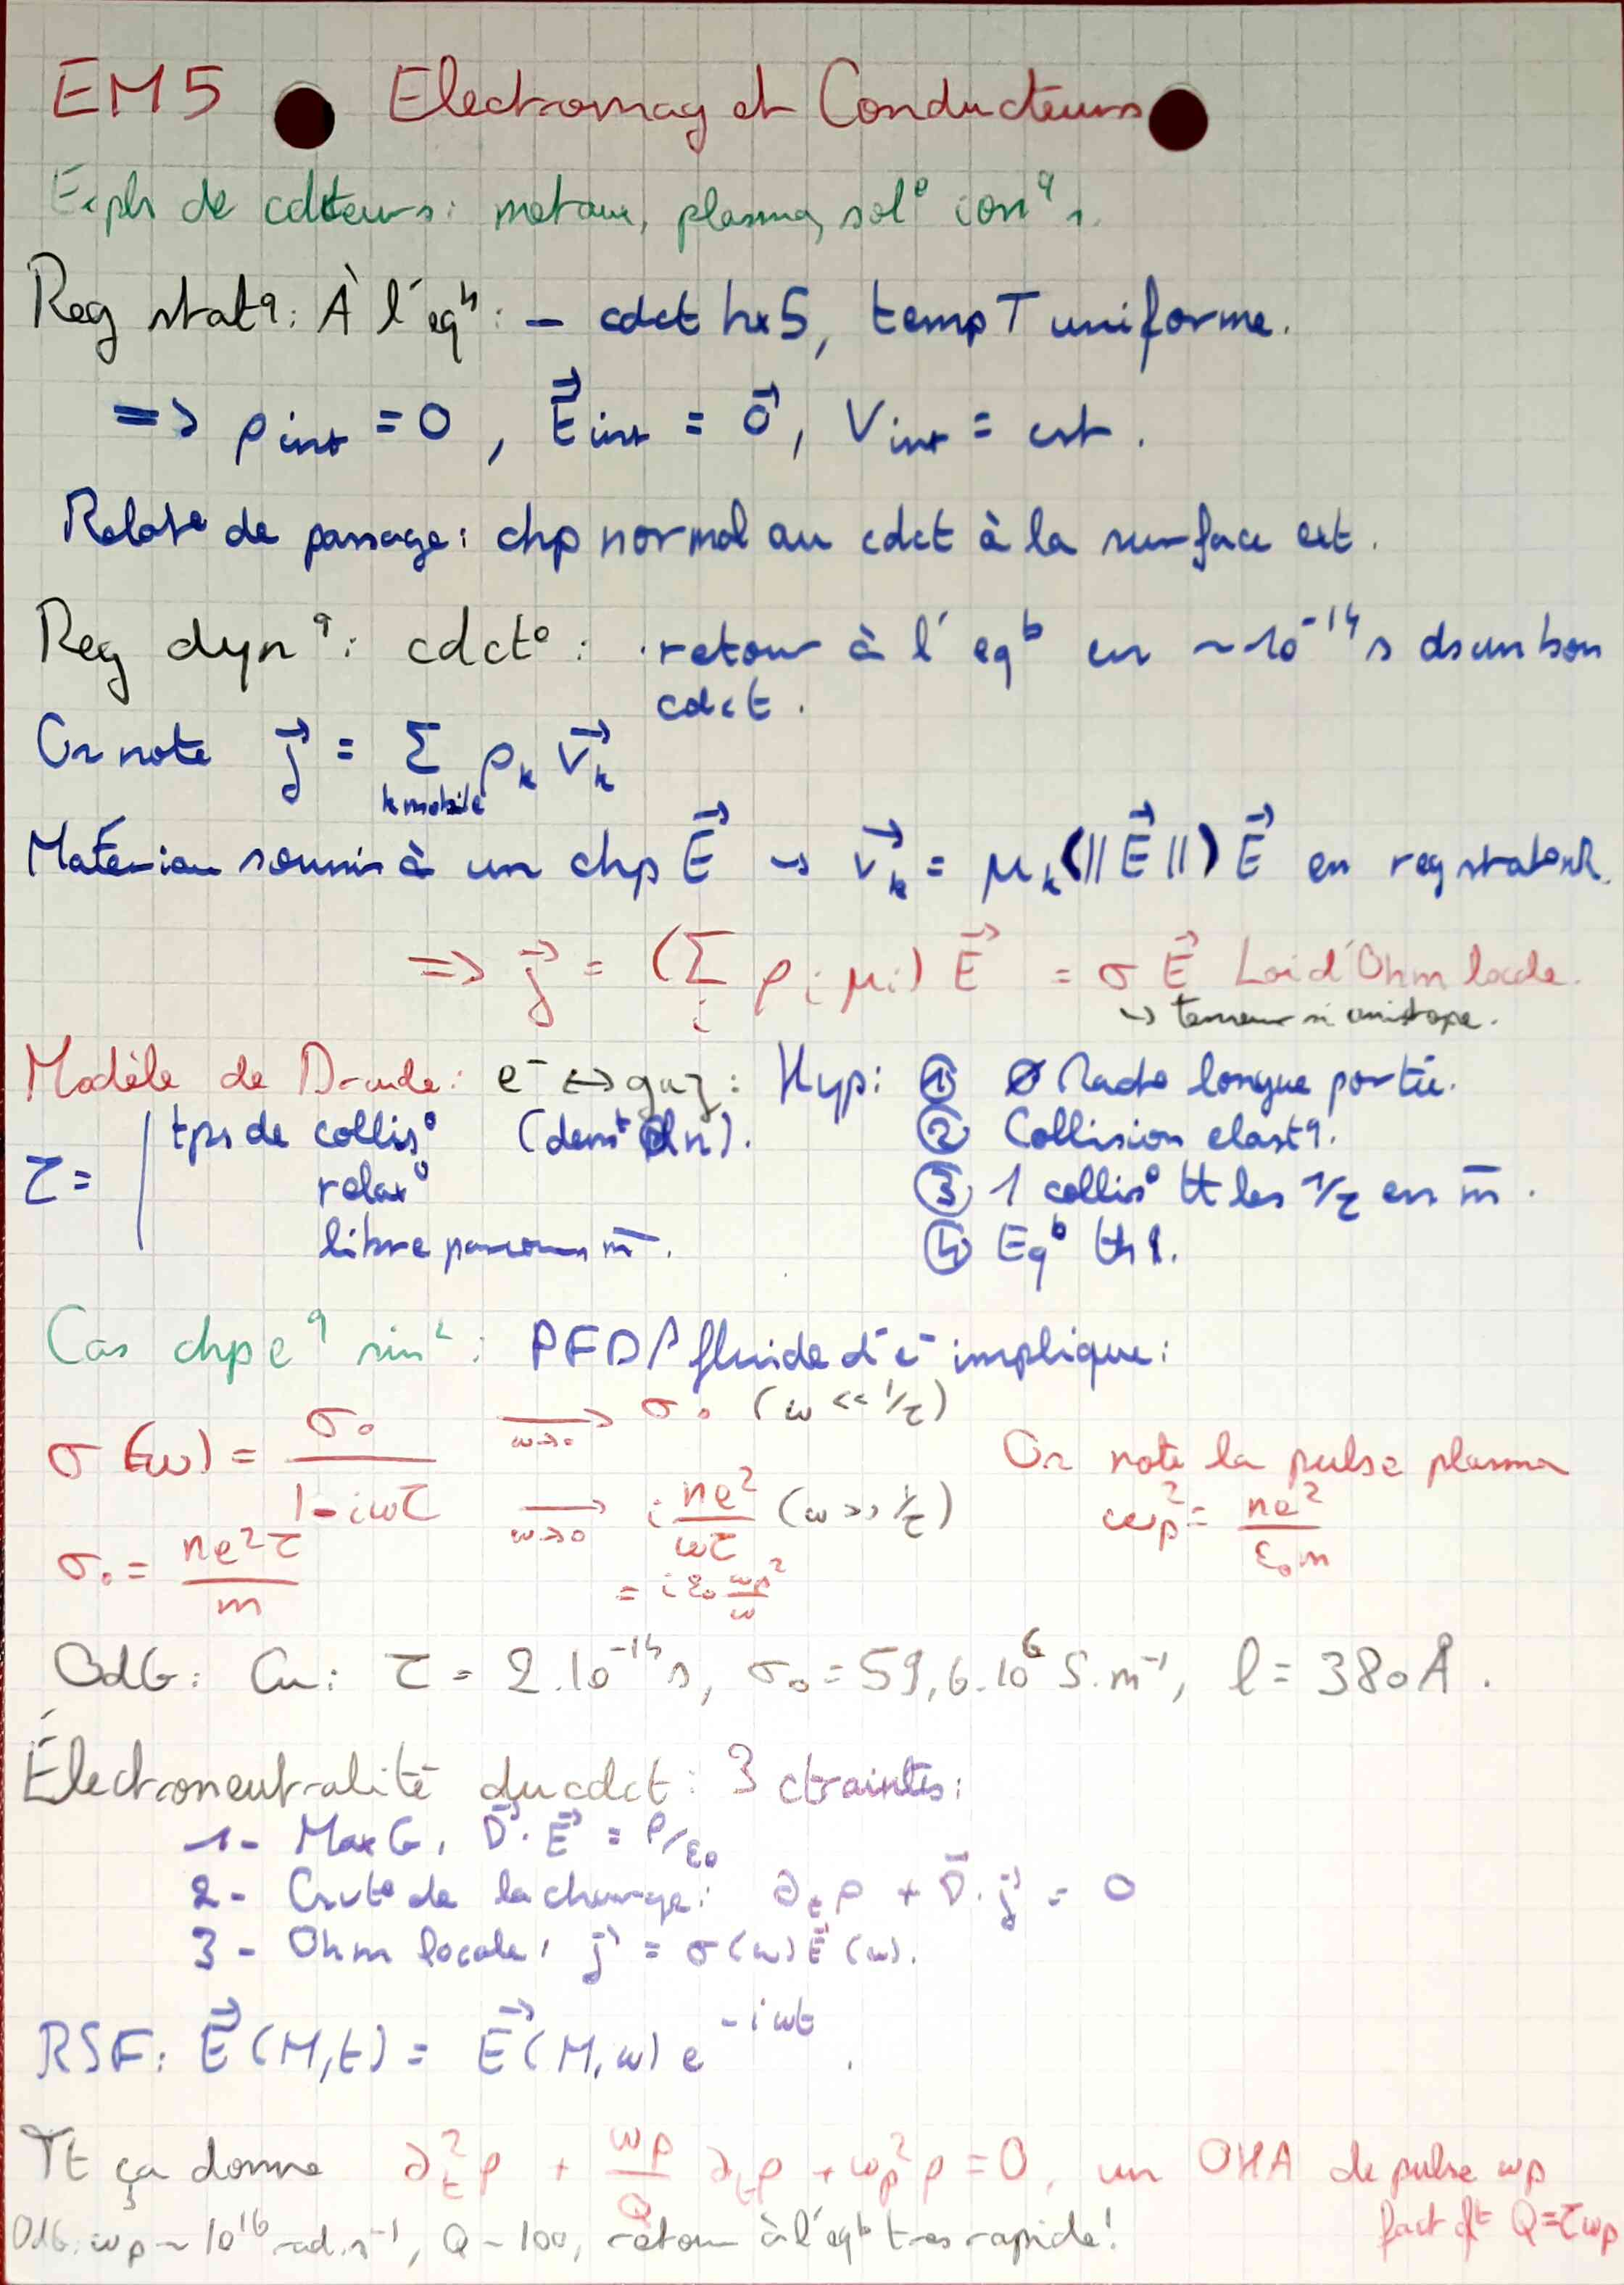 EM5 Electromag et Conducteurs
Expls de cdcteurs: metaux, plasma, sol° ion^q s.
Reg stat^q: À l'eq^b: - cdct hx5, temp T uniforme.
=> ρ int = 0, E⃗ int = 0⃗, V int = cst.
Relat° de passage: chp normal au cdct à la surface ext.
Reg dyn^q: cdct°: retour à l'eq^b en ~10^-14 s ds un bon
cdct.
On note j⃗ = Σ_{k mobile} ρ_k v⃗_k
Matériau soumis à un chp E⃗ → v⃗_k = μ_k(||E⃗||) E⃗ en reg stat
=> j⃗ = (Σ_i ρ_i μ_i) E⃗ = σ E⃗ Loi d'Ohm locale.
→ tenseur si anisotope.
Modèle de Drude: e^- ↔ gaz: Hyp: ① Ø longue portée.
τ = | tps de collis° (dens^t n). ② Collision elast^q.
relax° ③ 1 collis° tt les 1/τ en m̅.
libre parcours m̅. ④ Eq^b th^q.
Cas chp e^q sin^l: PFD fluide d'e^- implique:
σ(ω) = σ₀/(1-iωτ) →_{ω→0} σ₀ (ω << 1/τ)
→_{ω→0} i ne²/(ωτ) (ω >> 1/τ) On note la pulse plasma
σ₀ = ne²τ/m = iε₀ ωp²/ω ωp² = ne²/(ε₀m)
OdG: Cu: τ = 2.10^-14 s, σ₀ = 59,6.10^6 S.m^-1, l = 380 Å.
Électroneutralité du cdct: 3 ctraintes:
1- MaxG, ∇⃗.E⃗ = ρ/ε₀
2- Csvt° de la charge: ∂_t ρ + ∇⃗.j⃗ = 0
3- Ohm locale, j⃗ = σ(ω)E⃗(ω).
RSF: E⃗(M,t) = E⃗(M,ω) e^{-iωt}.
Tt ça donne ∂_t²ρ + ωp/Q ∂_tρ + ωp²ρ = 0, un OHA de pulse ωp
fact qt Q=τωp
OdG: ωp ~ 10^16 rad.s^-1, Q ~ 100, retour à l'eq^b tres rapide!